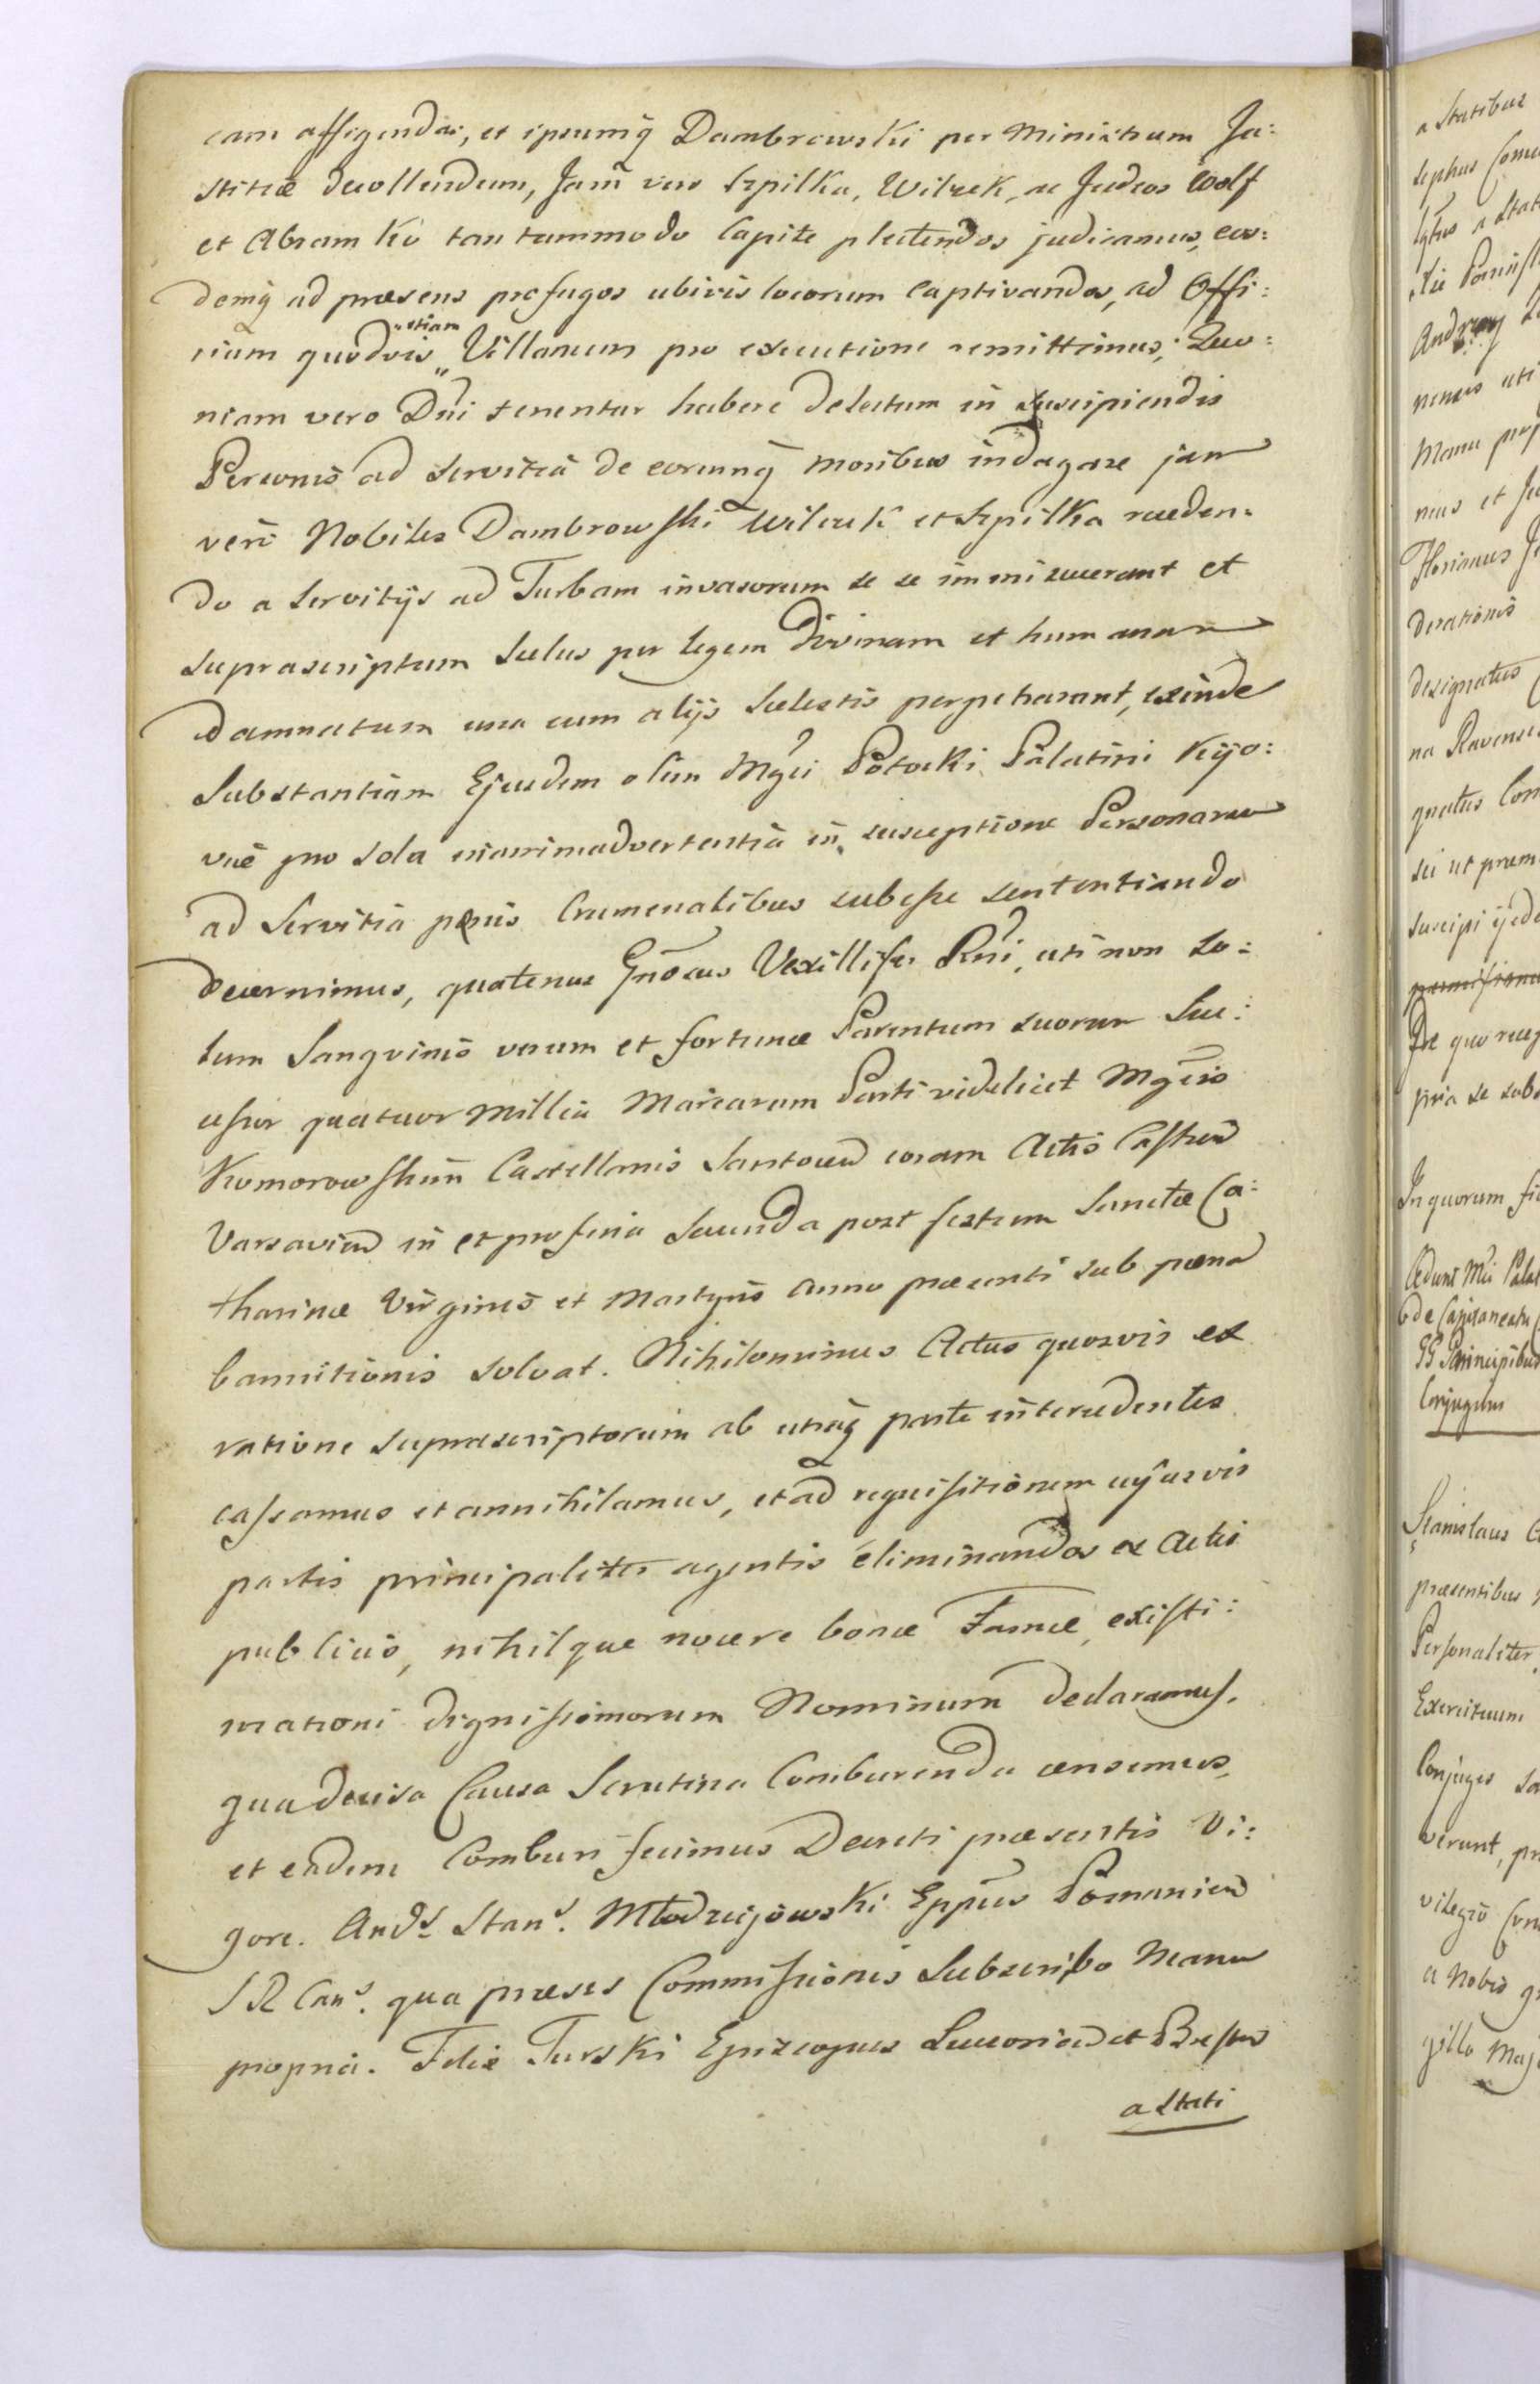 cam affigendas, et ipsumq Dambrowski per Ministrum Ju:
stitiæ decollendum, Jam vero Szpilka, Wilczek, ac Judeos Wolf
et Abramko tantummodo Capite plectendos judicamus, eos:
demq ad præsens profugos ubivis locorum captivandos, ad Offi:
cium quodvis etiam Villanum pro executione remittimus; Quo:
niam vero Dni tenentur habere delectum in suscipiendis
Personis ad servitia de eorumq moribus indagare jam
vero Nobiles Dambrowski Wilczek et Szpilka receden:
do a servitijs ad Turbam invasorum se se immiscuerant et
suprascriptum scelus per legem Divinam et humanam
damnatum una cum alijs scelestis perpetrarant, exinde
Substantiam Ejusdem olim Mgci Potocki Palatini Kijo:
viæ pro sola inanimadvertentia in susceptione Personarum
ad servitia pænis Crumenalibus subesse sententiando
decernimus, quatenus Gnosus Vexillifer Rni, uti non so:
lum Sangvinis verum et fortunæ Parentum suorum Suc:
cessor quatuor Millia Marcarum Parti videlicet Mgcis
Komorowskim Castellanis Santocen coram Actis Castren
Varsavien in et pro feria secunda post festum Sanctæ Ca:
tharinæ Virginis et Martyris Anno præsenti sub pæna
bannitionis solvat. Nihilominus Actus quosvis ex
ratione suprascriptorum ab utraq parte intercedentes
cassamus et annihilamus, et ad requisitionem cujusvis
partis principaliter agentis eliminandos ex Actis
publicis, nihilque nocere bonæ Famæ, existi:
mationi dignissimorum Nominum declaramus,
qua decisa Causa Scrutinia Comburenda censemus,
et eadem Comburi fecimus Decreti præsentis Vi:
gore. Ands Stans. Młodziejowski Eppus Posnanien
S R Cans. qua præses Commissionis Subscribo Manu
propria. Felix Turski Episcopus Luceorien et Bresten
a Stati

a Statibus
sephus
a Stat
Andrzey
nensis uti
Manu prop
nus et Ju
Florianus
derationis
designatus
na Ravensis
gnatus Con
sci ut præm
suscipi ijsde
De quo recep
pria se sub
In quorum fi
de Capitaneatu
Principibus
Conjugum
Stanislaus
præsentibus
Personaliter
Exercituum
Conjuges
verunt, pr
vilegio
a Nobis
gillo Maj